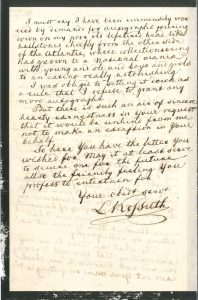 I must say I have been immensely wor-
ried by demands for autographs pouring
down on my poor old defenceless head like
hailstones chiefly from the other side
of the Atlantic, where collectioneering
has grown to a National mania
with young and old men boys and girls
to an extent really astonishing
I was obliged to lay it down as
a rule that I refuse to grant any
more autographs.
But there is such an air of sincere
hearty earnestness in your request
that it would be unkind from me
not to make an exception in your
behalf.
So here you have the letter you
wished for. May it at least serve
to secure me for the future
all the friendly feeling You
profess to entertain
Your obdt servt
L Kossuth